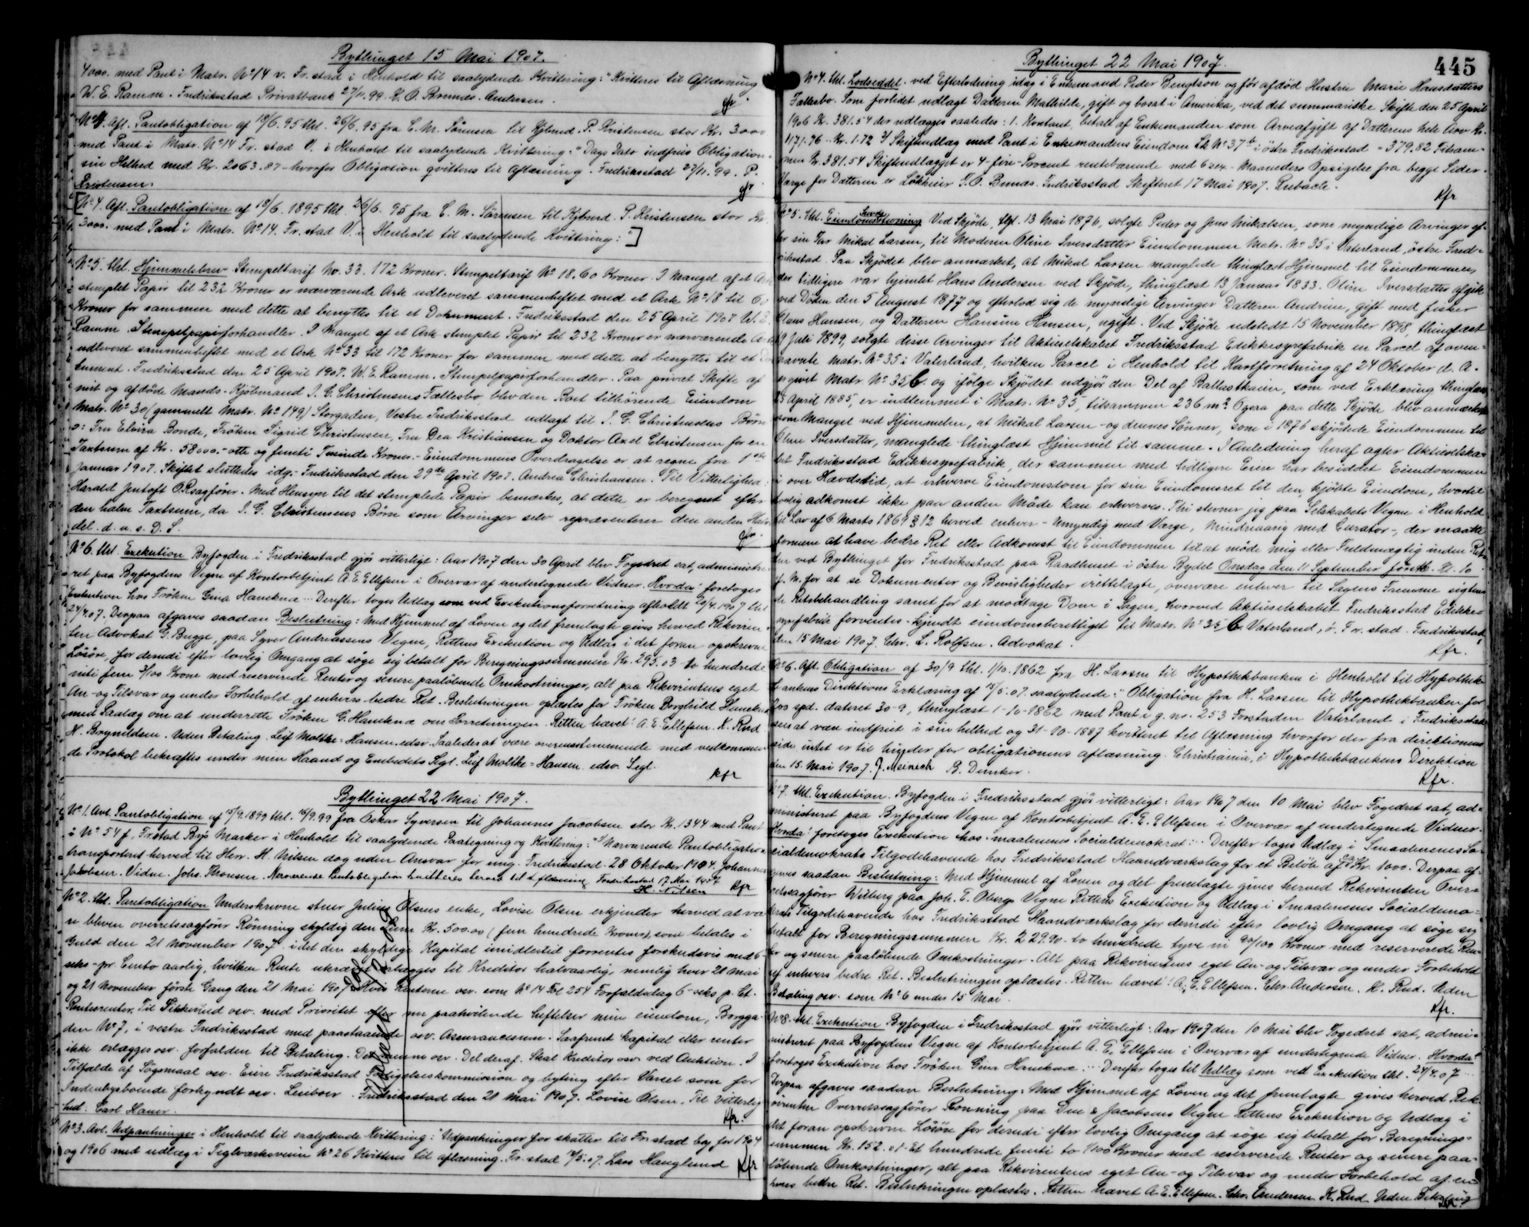 Bythinget 15 Mai 1907.
4000. med Pant i Matr. No 14 v. Fr.stad i Henhold til saalydende Kvittering: "Kvitteres til Aflæsning
W. E. Ramm. Fredriksstad Privatbank 27/11.99. H. O. Andersen.
No 4. Afl. Pantobligation af 19/6.95 thl. 26/6.95 fra C. M. Sørensen til Kjbmd. P. Kristensen stor Kr. 3000
med Pant i Matr. No 14 Fr.stad V. i Henhold til saalydende Kvittering: "Dags Dato indfries Obligation
sin Helhed med Kr. 2063.07 hvorfor Obligation qvitteres til aflæsning. Fredriksstad 27/11.99. P.
Kristensen.
[No 4. Afl. Pantobligation af 19/6. 1895 thl. 26/6. 95 fra C. M. Sørensen til Kjbmd. P. Kristensen stor Kr
3000. med Pant i Matr. No 14. Fr.stad V. i Henhold til saalydende Kvittering: ]
No 5. thl. Hjemmelsbrev Stempeltarif No. 33. 172 Kroner. Stempeltarif No 18. 60 Kroner. I Mangel af et Ark
stemplet Papir til 232 Kroner er nærværende Ark udleveret sammenheftet med et Ark No 18 til 60
Kroner for sammen med dette at benyttes til et Dokument. Fredriksstad den 25 April 1907 W. E.
Ramm. Stempelpapirforhandler. I Mangel af et Ark stemplet Papir til 232 Kroner er nærværende Ark
udleveret sammenheftet med et Ark No 33 til 172 Kroner for sammen med dette at benyttes til et Do-
kument. Fredriksstad den 25 April 1907. W. E. Ramm. Stempelpapirforhandler. Paa privat Skifte af
mit og afdøde Mands Kjøbmand I. G. Christensens Fællesbo blev den Boet tilhørende Eiendom
Matr. No 30 (gammelt Matr. No 149) Storgaden, Vestre Fredriksstad udlagt til I. G. Christensens Børn
o: Fru Elvira Bonde, Frøken Sigrid Christensen, Fru Dea Kristiansen og Doktor Axel Christensen for en
Taxtsum af Kr. 58000.- otte og femti Tusinde Kroner.- Eiendommens Overdragelse er at regne fra 1ste
Januar 1907. Skiftet sluttedes idag. Fredriksstad den 29de April 1907. Andrea Christiansen. Til Vitterlighed:
Harald Jentoft O.Rsagfører. Med Hensyn til det stemplede Papir bemærkes, at dette er beregnet efter
den halve Taxtsum, da I. G. Christensens Børn som Arvinger selv repræsenterer den anden Halv-
del. d. u. s. D. S.
No 6. thl. Exekution Byfogden i Fredriksstad gjør vitterligt: Aar 1907 den 30 April blev Fogedret sat, administre-
ret paa Byfogdens Vegne af Kontorbetjent A. E. Ellefsen i Overvær af undertegnede Vidner. Hvorda: foretoges
Exekution hos Frøken Gina Hanekna ... Derefter toges Udlæg som ved Exekutionsforretning afholdt 20/4.1907 thl.
24/4.07. Derpaa afgaves saadan Beslutning: Med Hjemmel af Loven og det fremlagte gives herved Rekviren-
ten Advokat G. Bugge, paa Syver Andreassens Vegne, Rettens Exekution og Udlæg i det foran opskrevne
Løsøre, for deraf efter lovlig Omgang at søge sig betalt for Beregningssummen Kr. 295.03 to hundrede
niti fem 3/100 Krone med reserverede Renter og senere paaløbende Omkostninger, alt paa Rekvirentens eget
An- og Tilsvar og under Forbehold af enhvers bedre Ret. Beslutningen oplæstes for Frøken Borghild Hanekna
med Paalæg om at underrette Frøken G. Hanekna om Forretningen. Retten hævet: A. E. Ellefsen. K. Rud.
N. Brynildsen. Uden Betaling. Leif Moltke-Hansen, edsv. Saaledes at være overensstemmende med vedkommen-
de Protokol bekræftes under min Haand og Embedets Sgl. Leif Moltke-Hansen, edsv. Segl.
Kfr
Bythinget 22 Mai 1907.
No 1. Avl. Pantobligation af 15/9.1899 thl. 19/9.99 fra Oskar Syversen til Johannes Jacobsen stor Kr. 1344 med Pant
i No 54 f. Fr.stad Bys Marker i Henhold til saalydende Paategning og Kvittering: "Nærværende Pantobligation
transporteres herved til Herr. H. Nilsen dog uden Ansvar for mig. Fredriksstad 28 Oktober 1904. Johannes
Jakobsen. Vidne. Johs Thoresen. Nærværende Pantobligation kvitteres herved til aflæsning. Fredriksstad 17 Mai 1907
H. Nilsen Kfr
No 2. thl. Pantobligation Underskrevne steur Julius Olsens enke, Lovise Olsen erkjender herved at væ-
re bleven overretssagfører Rønning skyldig den Sum Kr. 500.00 (fem hundrede Kroner), som betales i
Guld den 21 November 1907, idet den skyldige Kapital imidlertid forrentes forskudsvis med 6
seks pr. Cento aarlig, hvilken Rente erlægges til Kreditor halvaarlig, nemlig hver 21 Mai
og 21 November første Gang den 21 Mai 1907. Hvis Renterne osv. som No 14 Fol 254 Forfaldsdag 6-seks p. Ct.
Renterenter. Til Sikkerhed osv. med Prioritet efter nu paahvilende Heftelser min eiendom, Brygga-
den No 7, i vestre Fredriksstad med paastaaende osv. Assurancesum. Saafremt kapital eller renter
ikke erlægges osv. forfalden til Betaling. Da samme osv. Del deraf. Skal Kreditor osv. ved Auktion. I
Tilfælde af Søgsmaal osv. Eiere Fredriksstad Forligelseskommission og byting efter Varsel som for
Indenbysboende forkyndt osv. Leiboer. Fredriksstad den 21 Mai 1907. Lovise Olsen. Til Vitterlig-
hed: Carl Hauer. Kfr.
No 3. Avl. Udpantninger i Henhold til saalydende Kvittering: "Udpantninger for skatter til Fr.stad by for 1904
og 1906 med udlæg i Teglværksveien No 26 kvitteres til aflæsning. Fr.stad 14/5.07. Lars Hauglund Kfr
Bythinget 22 Mai 1907.
445
No 4. thl. Lodseddel. ved Efterlodning idag i Enkemand Peder Bengtson og før afdød Hustru Marie Hansdatters
Fællesbo. Som forlodet udlagt Datteren Mathilde, gift og bosat i Amerika, ved det summariske Skifte den 25 April
1906 Kr. 381.54 der udlægges saaledes: 1. Kontant, betalt af Enkemanden som Arveafgift af Datterens hele Arv Kr.
1171.76. Kr. 1.72 2 Skifteudlæg med Pant i Enkemandens Eiendom Lb No 37 østre Fredriksstad - 379.82 Tilsam-
men Kr. 381.54 Skifteudlægget er 4 fire Procent rentebærende med 6 sex Maaneders Opsigelse fra begge Sider.
Værge for Datteren er Løkkeier I. O. Fredriksstad Skifteret 17 Mai 1907.
Kfr
No 5. thl. Eiendomsdoms Stevning Ved Skjøde, thgl. 13 Mai 1876, solgte Peder og Jens Mikalsen, som myndige Arvinger af-
ter sin Far Mikal Larsen, til Moderen Oline Iversdatter Eiendommen Matr. No 35 i Vaterland, østre Fred-
riksstad Paa Skjødet blev anmærket, at Mikal Larsen manglede thinglæst Hjemmel til Eiendommen,
der tidligere var hjemlet Hans Andersen ved Skjøde, thinglæst 13 Januar 1833. Oline Iversdatter afgik
ved Døden den 5 August 1877 og efterlod sig de myndige Arvinger Datteren Andrine, gift med fisker
Hans Hansen, og Datteren Hansine Hansen, ugift. Ved Skjøde udstedt 15 November 1898, thinglæst
19 Juli 1899, solgte disse Arvinger til Aktieselskabet Fredriksstad Edikkesyrefabrik en Parcel af oven-
nævnte matr. No 35 i Vaterland, hvilken Parcel i Henhold til Kartforretning af 24 Oktober d. A.
Matr. No 35 b og ifølge Skjødet udgjør den Del af Ballasthaien, som ved Erklæring thinglæst
15 April 1885, er indlemmet i Matr. No 35, tilsammen 236 m². Ogsaa paa dette Skjøde blev anmærket
som Mangel ved Hjemmelen, at Mikal Larsen og dennes Sønner, som i 1876 skjødede Eiendommen til
Oline Iversdatter, manglede thinglæst Hjemmel til samme. I Anledning heraf agter Aktieselska-
bet Fredriksstad Edikkesyrefabrik, der sammen med tidligere Eiere har besiddet Eiendommen
i over Hævdstid, at erhverve Eiendomsdom for sin Eiendomsret til den kjøbte Eiendom, hvortil
lovlig adkomst ikke paa anden Maade kan erhverves. Thi stevner jeg paa Selskabets Vegne i Henhold
til Lov af 6 Marts 1869 § 12 herved enhver - Umyndig med Værge, Mindreaarig med Curator -, der maatte
formene at have bedre Ret eller Adkomst til Eiendommen til at møde mig eller Fuldmægtig inden Ret-
ten ved Bythinget for Fredriksstad paa Raadhuset i østre Bydel Onsdag den 11 September førstk. Kl. 10
f. M. for at se Dokumenter og Bevisligheder irettelagte, overvære enhver til Sagens Fremme sigten-
de Retsbehandling samt for at modtage Dom i Sagen, hvorved Aktieselskabet Fredriksstad Edikke-
syrefabrik forventes kjendt eiendomsberettiget til Matr. No 35 b. Vaterland, ø. Fr.stad. Fredriksstad,
den 15 Mai 1907. Chr. L. Rolfsen. Advokat.
Kfr.
No 6. Afl. Obligation af 30/9 thl. 1/10.1862 fra H. Larsen til Hypothekbanken i Henhold til Hypothek-
bankens Direktions Erklæring af 15/5.07 saalydende: "Obligation fra H. Larsen til Hypothekbanken for
spd. dateret 30-9, thinglæst 1-10-1862 med Pant i g. no. 253 Forstaden Vaterland i Fredriksstad
sees at være indfriet i sin helhed og 31-10-1887 kvitteret til Aflæsning hvorfor der fra direktionens
side intet er til hinder for obligationens aflæsning. Christiania, i Hypothekbankens Direktion
den 15 Mai 1907. J. Meinich B. Dunker.
Kfr.
No 7. thl. Exekution. Byfogden i Fredriksstad gjør vitterligt: Aar 1907 den 10 Mai blev Fogedret sat, ad-
ministreret paa Byfogdens Vegne af Kontorbetjent A. E. Ellefsen i Overvær af undertegnede Vidner.
Hvorda: foretoges Exekution hos Smaalenenes Socialdemokrat ... Derefter toges Udlæg i Smaalenenes So-
cialdemokrats Tilgodehavende hos Fredriksstad Haandværkslag for et Beløb af Kr. 1000. Derpaa af-
gaves saadan Beslutning: Med Hjemmel af Loven og det fremlagte gives herved Rekvirenten Over-
retssagfører Wilberg paa Joh. E. Obergs Vegne Rettens Exekution og Udlæg i Smaalenenes Socialdemo-
krats Tilgodehavende hos Fredriksstad Haandværkslag for derudi efter lovlig Omgang at søge sig
betalt for Beregningssummen Kr. 229.90 to hundrede tyve ni 90/100 Kroner med reserverede Ren-
ter og senere paaløbende Omkostninger. Alt paa Rekvirentens eget An- og Tilsvar og under Forbehold
af enhvers bedre Ret. Beslutningen oplæstes. Retten hævet: A. E. Ellefsen. Chr. Andersen. K. Rud. Uden
Betaling osv. som No 6 under 15 Mai.
Kfr.
No 8. thl. Exekution Byfogden i Fredriksstad gjør vitterligt: Aar 1907 den 10 Mai blev Fogedret sat, admi-
nistreret paa Byfogdens Vegne af Kontorbetjent A. E. Ellefsen i Overvær af undertegnede Vidner. Hvorda:
foretoges Exekution hos Frøken Gina Hanekna ... Derefter toges til Udlæg som ved Exekution thl. 24/4.07 ...
Derpaa afgaves saadan Beslutning: Med Hjemmel af Loven og det fremlagte gives herved Rek-
virenten Overretssagfører Rønning paa Due & Jacobsens Vegne Rettens Exekution og Udlæg i
det foran opskrevne Løsøre for derudi efter lovlig Omgang at søge sig betalt for Beregnings-
summen Kr. 152.01 Et hundrede femti to 1/100 Kroner med reserverede Renter og senere paa-
løbende Omkostninger, alt paa Rekvirentens eget An- og Tilsvar og under Forbehold af en-
hvers bedre Ret. Beslutningen oplæstes. Retten hævet A. E. Ellefsen. Chr. Andersen. K. Rud. Uden Betaling